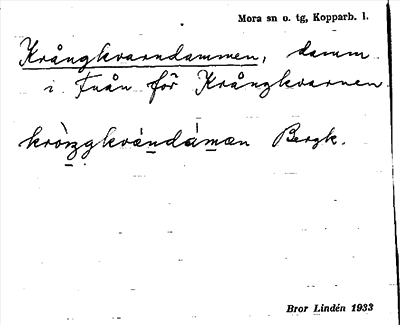 Mora sn o. tg, Kopparb. l.
Krångkvarndammen, damm
i Fuån för Krångkvarnen
Bergk.
Bror Lindén 1933